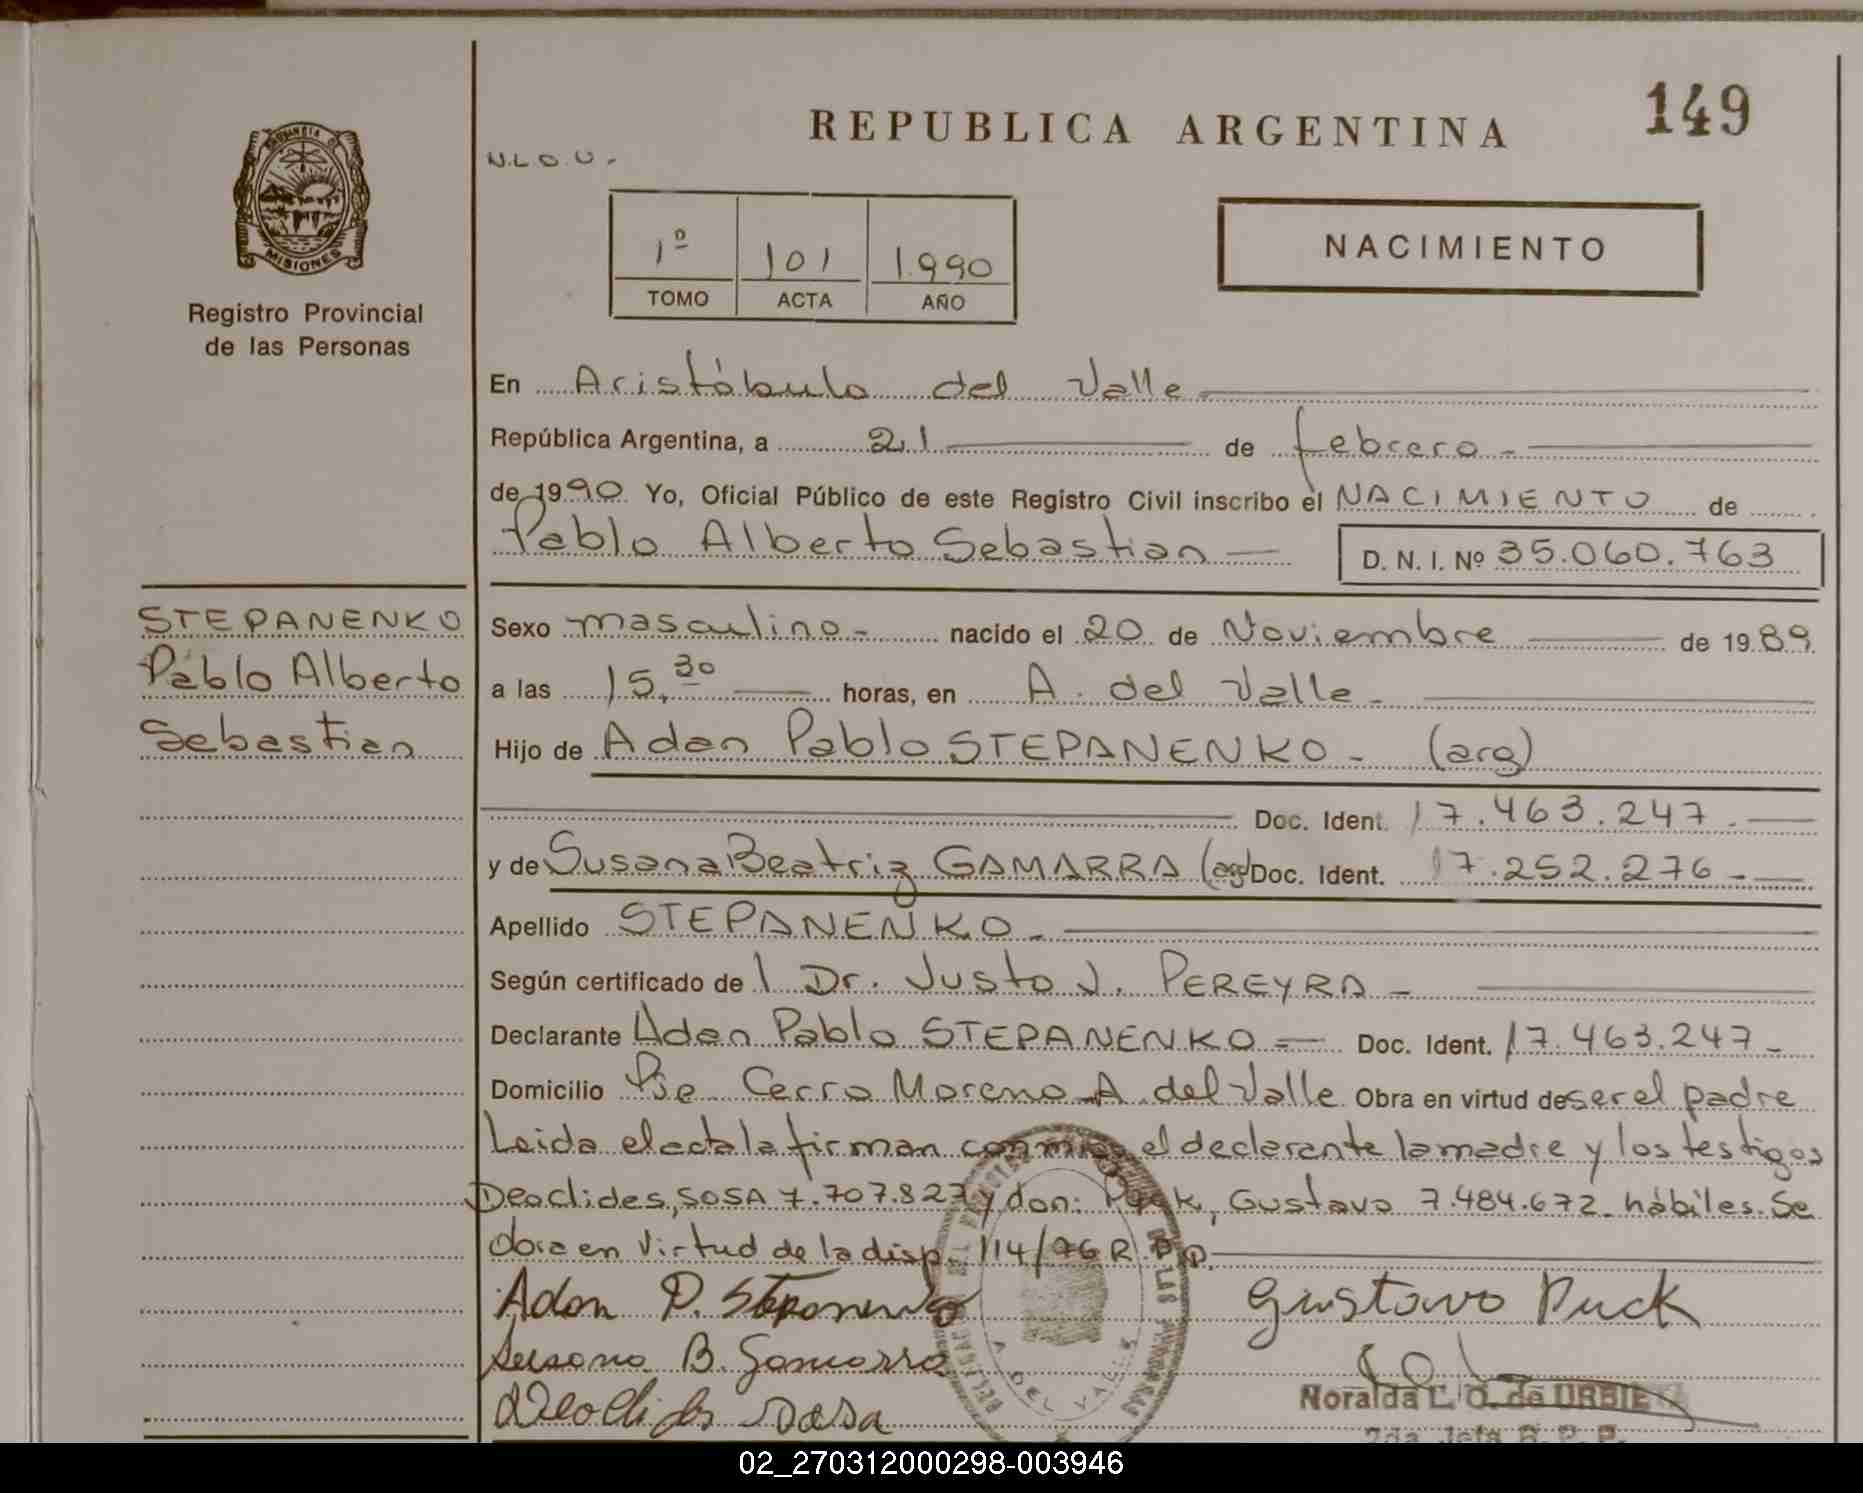 149
REPUBLICA ARGENTINA
N.L.O.U.
NACIMIENTO
1º 101 1.990
TOMO ACTA AÑO
PROVINCIA
MISIONES
Registro Provincial
de las Personas
En Aristóbulo del Valle
República Argentina, a 21 de febrero
de 1990 Yo, Oficial Público de este Registro Civil inscribo el NACIMIENTO de
Pablo Alberto Sebastian D. N. I. Nº 35.060.763
STEPANENKO
Pablo Alberto
Sebastian
Sexo masculino nacido el 20 de Noviembre de 1989
a las 15,30 horas, en A. del Valle
Hijo de Adan Pablo STEPANENKO (arg)
Doc. Ident. 17.463.247
y de Susana Beatriz GAMARRA (arg) Doc. Ident. 17.252.276
Apellido STEPANENKO
Según certificado de l Dr. Justo J. PEREYRA
Declarante Adan Pablo STEPANENKO Doc. Ident. 17.463.247
Domicilio Pje Cerro Moreno A. del Valle Obra en virtud de ser el padre
Leida el acta la firman conmigo el declarante la madre y los testigos
Deoclides, SOSA 7.707.827 y don: Puck, Gustavo 7.484.672 hábiles. Se
obra en virtud de la disp. 114/76 R.P.P.
Adan P. Stepanenko Gustavo Puck
Susana B. Gamarra
Deoclides Sosa
A. DEL VALLE
Noralda L. O. de URBIETA
2da. Jefa R. P. P.
02_270312000298-003946